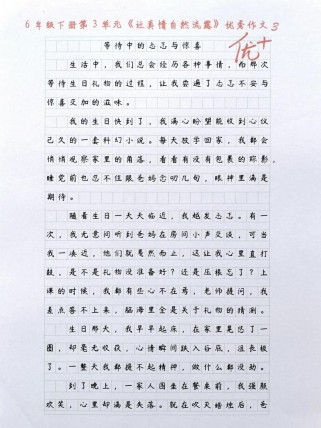 6年级下册第3单元《让真情自然流露》优秀作文3
优+
等待中的忐忑与惊喜
生活中，我们总会经历各种事情，而那次
等待生日礼物的过程，让我尝遍了忐忑不安与
惊喜交加的滋味。
我的生日快到了，我满心盼望能收到心仪
已久的一套科幻小说。每天放学回家，我都会
悄悄观察家里的角落，看看有没有包裹的踪影，
睡觉前也忍不住跟爸妈念叨几句，眼神里满是
期待。
随着生日一天天临近，我越发忐忑。有一
次，我无意间听到爸妈在房间小声交谈，可当
我一凑近，他们就戛然而止，这让我心里直打
鼓，是不是礼物没准备好？还是压根忘了？上
课的时候，我都有些心不在焉，老师提问，我
差点答不上来，脑海里全是关于礼物的猜测。
生日那天，我早早起床，在家里晃悠了一
圈，却毫无收获，心情瞬间跌入谷底，沮丧极
了。一整天我都提不起精神，做什么都没劲。
到了晚上，一家人围坐在餐桌前，我强颜
欢笑，心里却满是失落。就在吹灭蜡烛后，爸